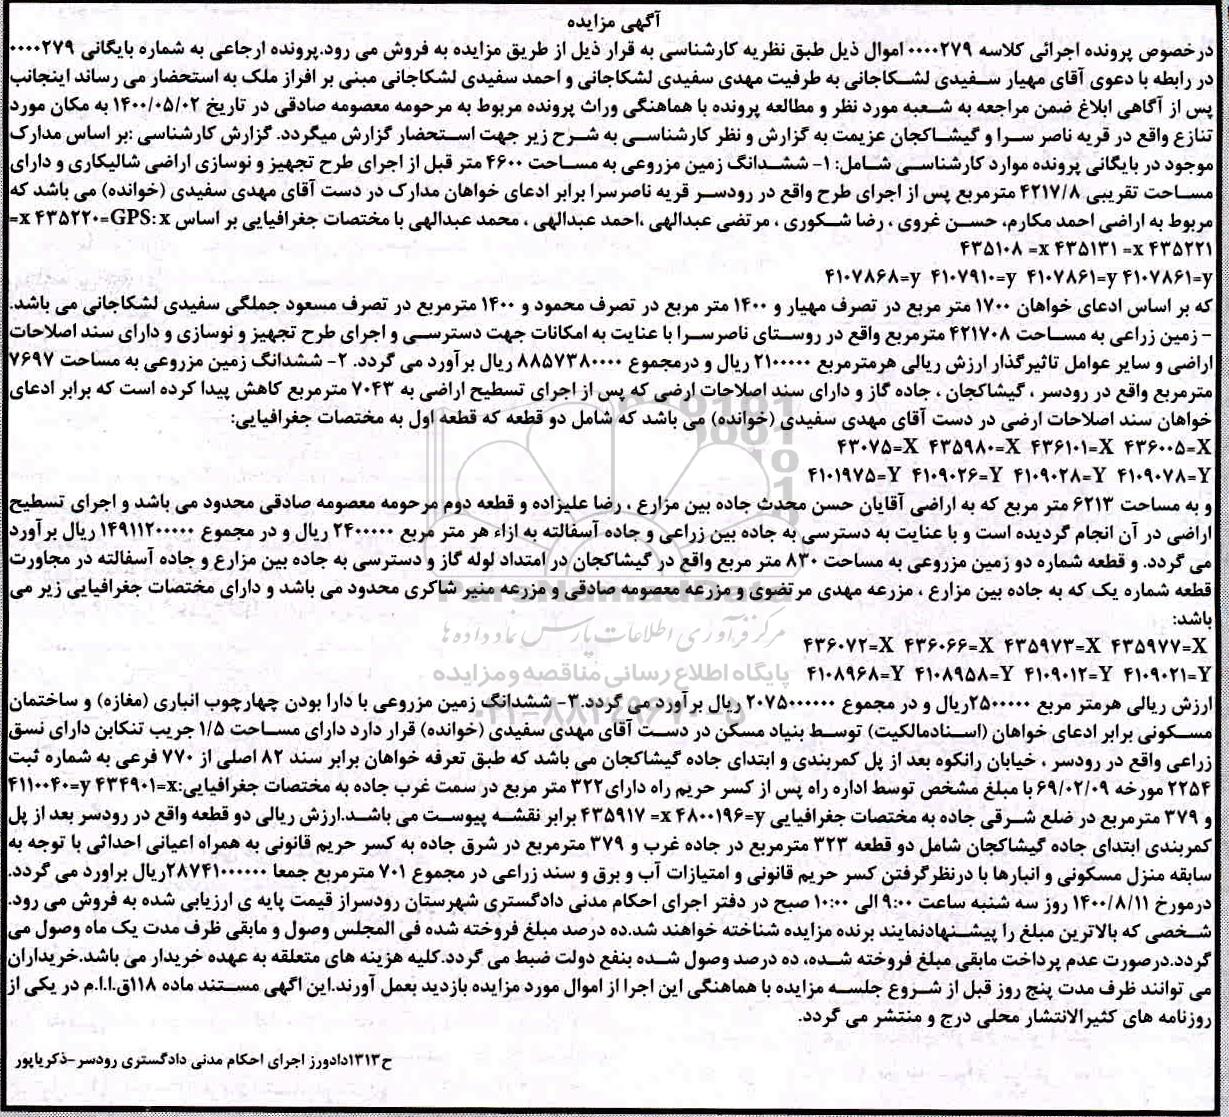 آگهی مزایده
درخصوص پرونده اجرائی کلاسه ۰۰۰۰۲۷۹ اموال ذیل طبق نظریه کارشناسی به قرار ذیل از طریق مزایده به فروش می رود.پرونده ارجاعی به شماره بایگانی ۰۰۰۰۲۷۹
در رابطه با دعوی آقای مهیار سفیدی لشکاجانی به طرفیت مهدی سفیدی لشکاجانی و احمد سفیدی لشکاجانی مبنی بر افراز ملک به استحضار می رساند اینجانب
پس از آگاهی ابلاغ ضمن مراجعه به شعبه مورد نظر و مطالعه پرونده با هماهنگی وراث پرونده مربوط به مرحومه معصومه صادقی در تاریخ ۱۴۰۰/۰۵/۰۲ به مکان مورد
تنازع واقع در قریه ناصر سرا و گیشاکجان عزیمت به گزارش و نظر کارشناسی به شرح زیر جهت استحضار گزارش میگردد. گزارش کارشناسی :بر اساس مدارک
موجود در بایگانی پرونده موارد کارشناسی شامل: ۱- ششدانگ زمین مزروعی به مساحت ۴۶۰۰ متر قبل از اجرای طرح تجهیز و نوسازی اراضی شالیکاری و دارای
مساحت تقریبی ۴۲۱۷/۸ مترمربع پس از اجرای طرح واقع در رودسر قریه ناصرسرا برابر ادعای خواهان مدارک در دست آقای مهدی سفیدی (خوانده) می باشد که
مربوط به اراضی احمد مکارم، حسن غروی ، رضا شکوری ، مرتضی عبدالهی ،احمد عبدالهی ، محمد عبدالهی با مختصات جغرافیایی بر اساس GPS: x=۴۳۵۲۲۰ x=
۴۳۵۲۲۱ x= ۴۳۵۱۳۱ x= ۴۳۵۱۰۸
y=۴۱۰۷۸۶۱ y=۴۱۰۷۸۶۱ y=۴۱۰۷۹۱۰ y=۴۱۰۷۸۶۸
که بر اساس ادعای خواهان ۱۷۰۰ متر مربع در تصرف مهیار و ۱۴۰۰ متر مربع در تصرف محمود و ۱۴۰۰ مترمربع در تصرف مسعود جملگی سفیدی لشکاجانی می باشد.
- زمین زراعی به مساحت ۴۲۱۷۰۸ مترمربع واقع در روستای ناصرسرا با عنایت به امکانات جهت دسترسی و اجرای طرح تجهیز و نوسازی و دارای سند اصلاحات
اراضی و سایر عوامل تاثیرگذار ارزش ریالی هرمترمربع ۲۱۰۰۰۰۰ ریال و درمجموع ۸۸۵۷۳۸۰۰۰۰ ریال برآورد می گردد. ۲- ششدانگ زمین مزروعی به مساحت ۷۶۹۷
مترمربع واقع در رودسر ، گیشاکجان ، جاده گاز و دارای سند اصلاحات ارضی که پس از اجرای تسطیح اراضی به ۷۰۴۳ مترمربع کاهش پیدا کرده است که برابر ادعای
خواهان سند اصلاحات ارضی در دست آقای مهدی سفیدی (خوانده) می باشد که شامل دو قطعه که قطعه اول به مختصات جغرافیایی:
X=۴۳۶۰۰۵ X=۴۳۶۱۰۱ X=۴۳۵۹۸۰ X=۴۳۰۷۵
Y=۴۱۰۹۰۷۸ Y=۴۱۰۹۰۲۸ Y=۴۱۰۹۰۲۶ Y=۴۱۰۱۹۷۵
و به مساحت ۶۲۱۳ متر مربع که به اراضی آقایان حسن محدث جاده بین مزارع ، رضا علیزاده و قطعه دوم مرحومه معصومه صادقی محدود می باشد و اجرای تسطیح
اراضی در آن انجام گردیده است و با عنایت به دسترسی به جاده بین زراعی و جاده آسفالته به ازاء هر متر مربع ۲۴۰۰۰۰۰ ریال و در مجموع ۱۴۹۱۱۲۰۰۰۰۰ ریال برآورد
می گردد. و قطعه شماره دو زمین مزروعی به مساحت ۸۳۰ متر مربع واقع در گیشاکجان در امتداد لوله گاز و دسترسی به جاده بین مزارع و جاده آسفالته در مجاورت
قطعه شماره یک که به جاده بین مزارع ، مزرعه مهدی مرتضوی و مزرعه معصومه صادقی و مزرعه منیر شاکری محدود می باشد و دارای مختصات جغرافیایی زیر می
باشد:
X=۴۳۵۹۷۷ X=۴۳۵۹۷۳ X=۴۳۶۰۶۶ X=۴۳۶۰۷۲
Y=۴۱۰۹۰۲۱ Y=۴۱۰۹۰۱۲ Y=۴۱۰۸۹۵۸ Y=۴۱۰۸۹۶۸
ارزش ریالی هرمتر مربع ۲۵۰۰۰۰۰ریال و در مجموع ۲۰۷۵۰۰۰۰۰۰ ریال برآورد می گردد.۳- ششدانگ زمین مزروعی با دارا بودن چهارچوب انباری (مغازه) و ساختمان
مسکونی برابر ادعای خواهان (اسنادمالکیت) توسط بنیاد مسکن در دست آقای مهدی سفیدی (خوانده) قرار دارد دارای مساحت ۱/۵ جریب تنکابن دارای نسق
زراعی واقع در رودسر ، خیابان رانکوه بعد از پل کمربندی و ابتدای جاده گیشاکجان می باشد که طبق تعرفه خواهان برابر سند ۸۲ اصلی از ۷۷۰ فرعی به شماره ثبت
۲۲۵۴ مورخه ۶۹/۰۲/۰۹ با مبلغ مشخص توسط اداره راه پس از کسر حریم راه دارای۳۲۲ متر مربع در سمت غرب جاده به مختصات جغرافیایی:x=۴۳۴۹۰۱ y=۴۱۱۰۰۴۰
و ۳۷۹ مترمربع در ضلع شرقی جاده به مختصات جغرافیایی y=۴۸۰۰۱۹۶ x= ۴۳۵۹۱۷ برابر نقشه پیوست می باشد.ارزش ریالی دو قطعه واقع در رودسر بعد از پل
کمربندی ابتدای جاده گیشاکجان شامل دو قطعه ۳۲۳ مترمربع در جاده غرب و ۳۷۹ مترمربع در شرق جاده به کسر حریم قانونی به همراه اعیانی احداثی با توجه به
سابقه منزل مسکونی و انبارها با درنظرگرفتن کسر حریم قانونی و امتیازات آب و برق و سند زراعی در مجموع ۷۰۱ مترمربع جمعا ۲۸۷۴۱۰۰۰۰۰۰ریال براورد می گردد.
درمورخ ۱۴۰۰/۸/۱۱ روز سه شنبه ساعت ۹:۰۰ الی ۱۰:۰۰ صبح در دفتر اجرای احکام مدنی دادگستری شهرستان رودسراز قیمت پایه ی ارزیابی شده به فروش می رود.
شخصی که بالاترین مبلغ را پیشنهادنمایند برنده مزایده شناخته خواهند شد.ده درصد مبلغ فروخته شده فی المجلس وصول و مابقی ظرف مدت یک ماه وصول می
گردد.درصورت عدم پرداخت مابقی مبلغ فروخته شده، ده درصد وصول شده بنفع دولت ضبط می گردد.کلیه هزینه های متعلقه به عهده خریدار می باشد.خریداران
می توانند ظرف مدت پنج روز قبل از شروع جلسه مزایده با هماهنگی این اجرا از اموال مورد مزایده بازدید بعمل آورند.این اگهی مستند ماده ۱۱۸ق.ا.ا.م در یکی از
روزنامه های کثیرالانتشار محلی درج و منتشر می گردد.
ح۱۳۱۳دادورز اجرای احکام مدنی دادگستری رودسر-ذکریاپور
ParsNamadData
مرکز فرآوری اطلاعات پارس نماد داده ها
پایگاه اطلاع رسانی مناقصه و مزایده